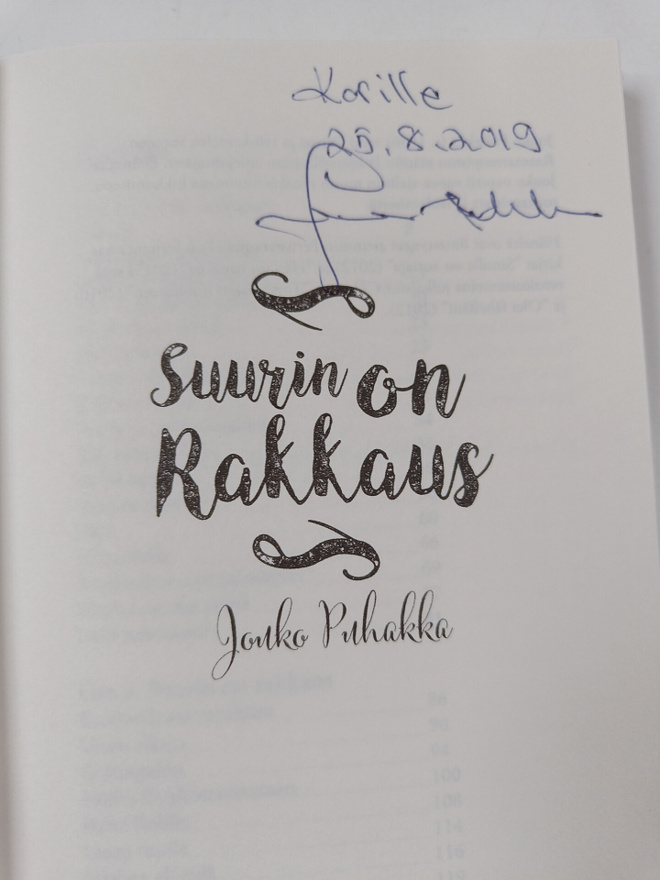 Karille
25.8.2019
Suurin on
Rakkaus
Jouko Puhakka